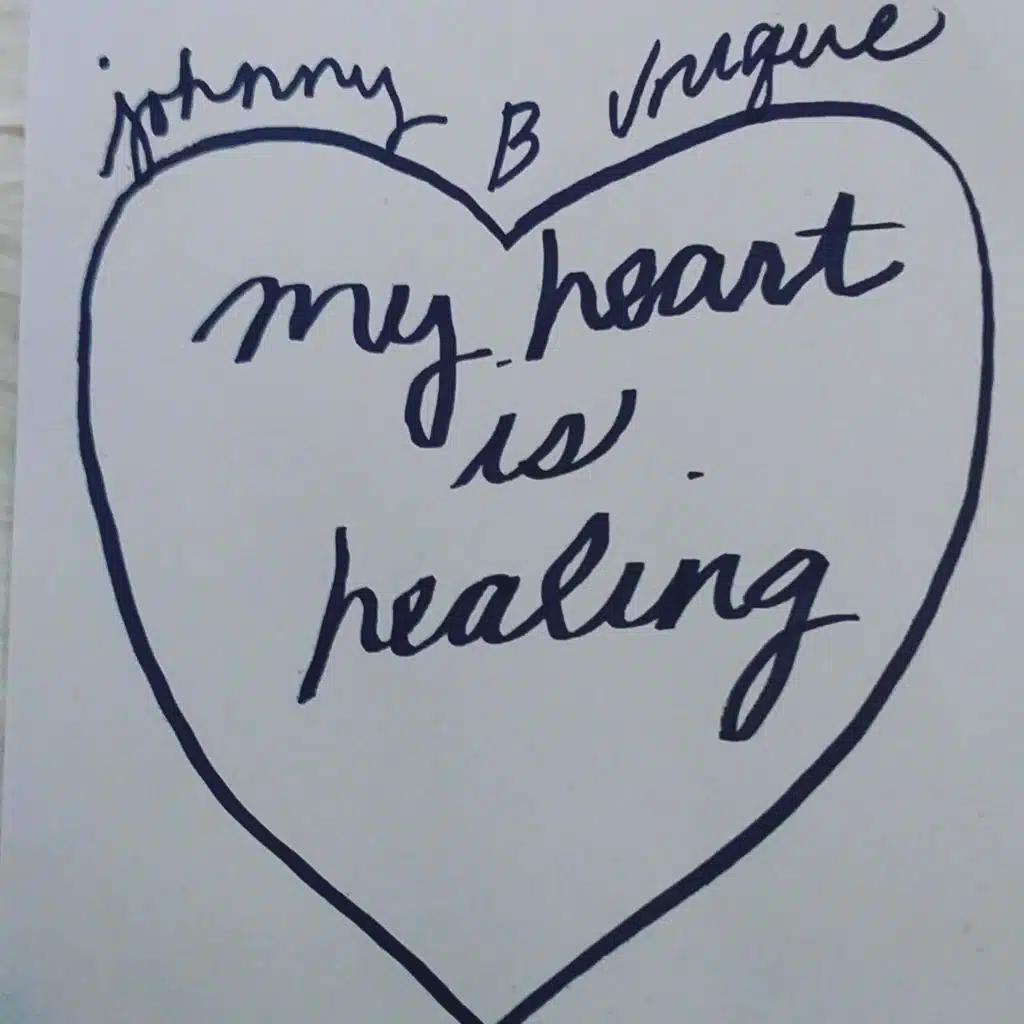 johnny B Unique
my heart
is
healing